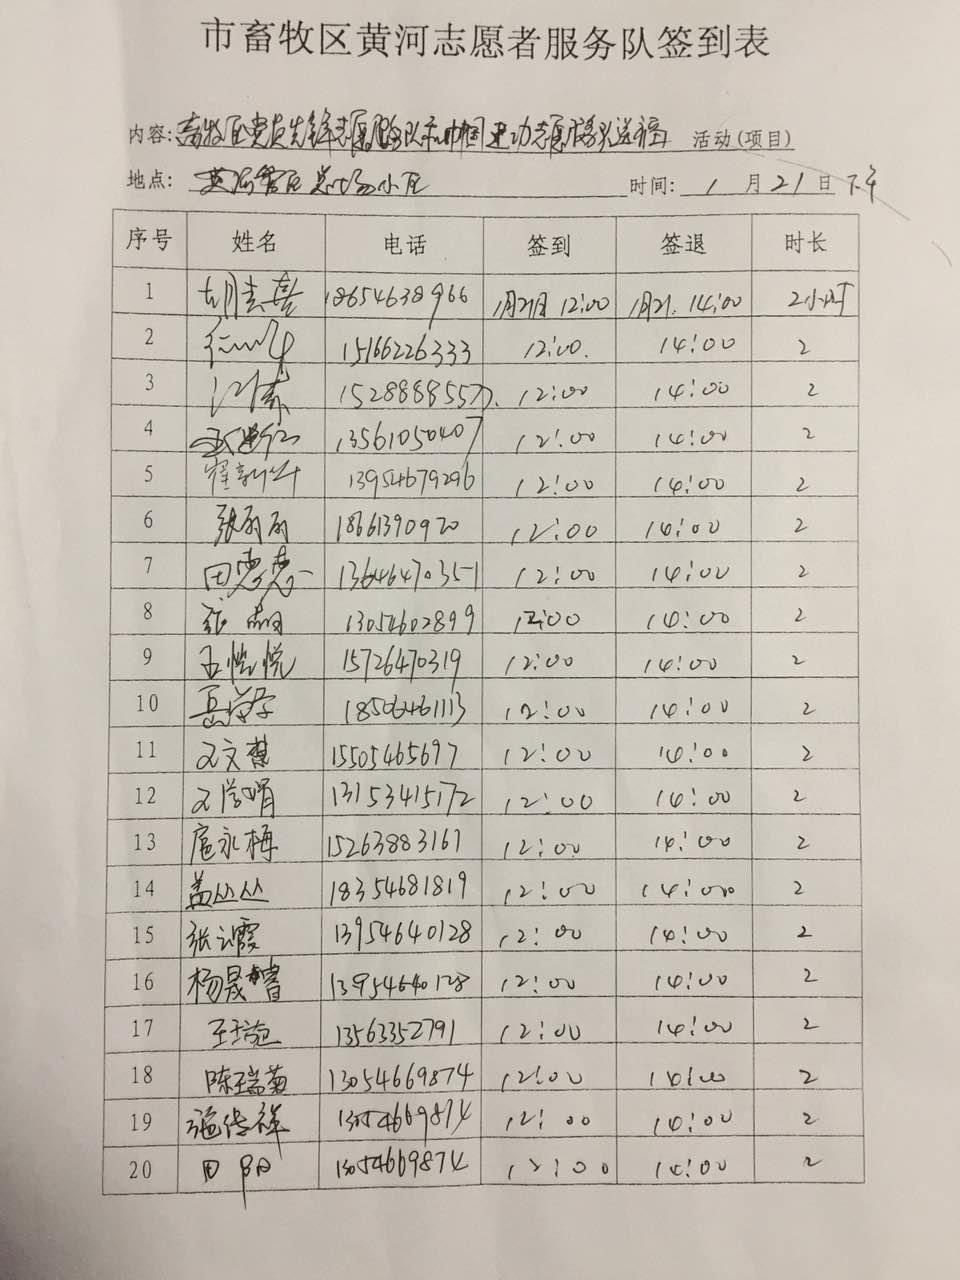 市畜牧区黄河志愿者服务队签到表
内容: 畜牧区党员先锋志愿服务队和巾帼建功志愿 送福 活动(项目)
地点: 黄河 区总场小区 时间: 1 月 21 日 下午
序号 姓名 电话 签到 签退 时长
1 18654638966 1月21日 12:00 1月21. 14:00 2小时
2 15166226333 12:00. 14:00 2
3 15288885577. 12:00 14:00 2
4 13561050407 12:00 14:00 2
5 翟新华 13954679296 12:00 14:00 2
6 张丽丽 18661390920 12:00 14:00 2
7 田惠惠 13646470351 12:00 14:00 2
8 张 13054602899 12:00 14:00 2
9 王恺悦 15726470319 12:00 14:00 2
10 18506461113 12:00 14:00 2
11 文 15505465697 12:00 14:00 2
12 娟 13153415172 12:00 14:00 2
13 扈永梅 15263883161 12:00 14:00 2
14 盖丛丛 18354681819 12:00 14:00 2
15 张云霞 13954640128 12:00 14:00 2
16 杨晟睿 13954640128 12:00 14:00 2
17 王 13563352791 12:00 14:00 2
18 陈瑞菊 13054669874 12:00 14:00 2
19 传祥 13054669874 12:00 14:00 2
20 田 13054669874 12:00 14:00 2